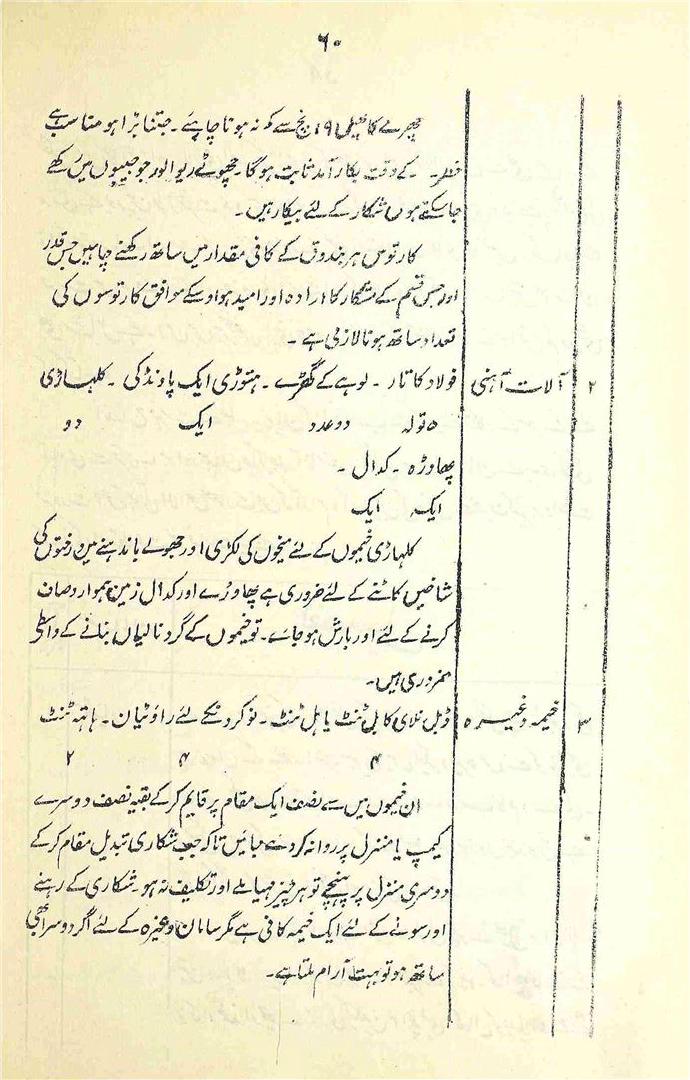 ۶۰
چھرے کا پھل ۹ انچ سے کم نہ ہونا چاہئے۔ جتنا بڑا ہو مناسب ہے
خطرہ کے وقت بکار آمد ثابت ہوگا۔ چھوٹے ریوالور جو جیبوں میں رکھے
جا سکتے ہوں شکار کے لئے بیکار ہیں۔
کارتوس ہر بندوق کے کافی مقدار میں ساتھ رکھنے چاہئیں جس قدر
اور جس قسم کے شکار کا ارادہ اور امید ہو اوسکے موافق کارتوسوں کی
تعداد ساتھ ہونا لازمی ہے۔
۲ آلات آہنی فولاد کا تار۔ لوہے کے گھڑے۔ ہتوڑی ایک پاونڈ کی۔ کلہاڑی
۵ تولہ دو عدد ایک دو
پھاوڑہ۔ کدال۔
ایک ایک
کلہاڑی خیموں کے لئے میخوں کی لکڑی اور جھولے باندہنے میں درختوں کی
شاخیں کاٹنے کے لئے ضروری ہے پھاوڑے اور کدال زمین ہموار و صاف
کرنے کے لئے اور بارش ہو جائے۔ تو خیموں کے گرد نالیاں بنانے کے واسطے
ضروری ہیں۔
۳ خیمہ وغیرہ ڈبل فلائی کابل ٹنٹ یا ہل ٹنٹ۔ نوکرونکے لئے راوٹیان۔ باتھ ٹنٹ
۴ ۴ ۲
ان خیموں میں سے نصف ایک مقام پر قایم کر کے بقیہ نصف دوسرے
کیمپ یا منزل پر روانہ کر دئے جائیں تاکہ جب شکاری تبدیل مقام کر کے
دوسری منزل پر پہنچے تو ہر چیز مہیا ملے اور تکلیف نہ ہو۔ شکاری کے رہنے
اور سونے کے لئے ایک خیمہ کافی ہے مگر سامان وغیرہ کے لئے اگر دوسرا بھی
ساتھ ہو تو بہت آرام ملتا ہے۔